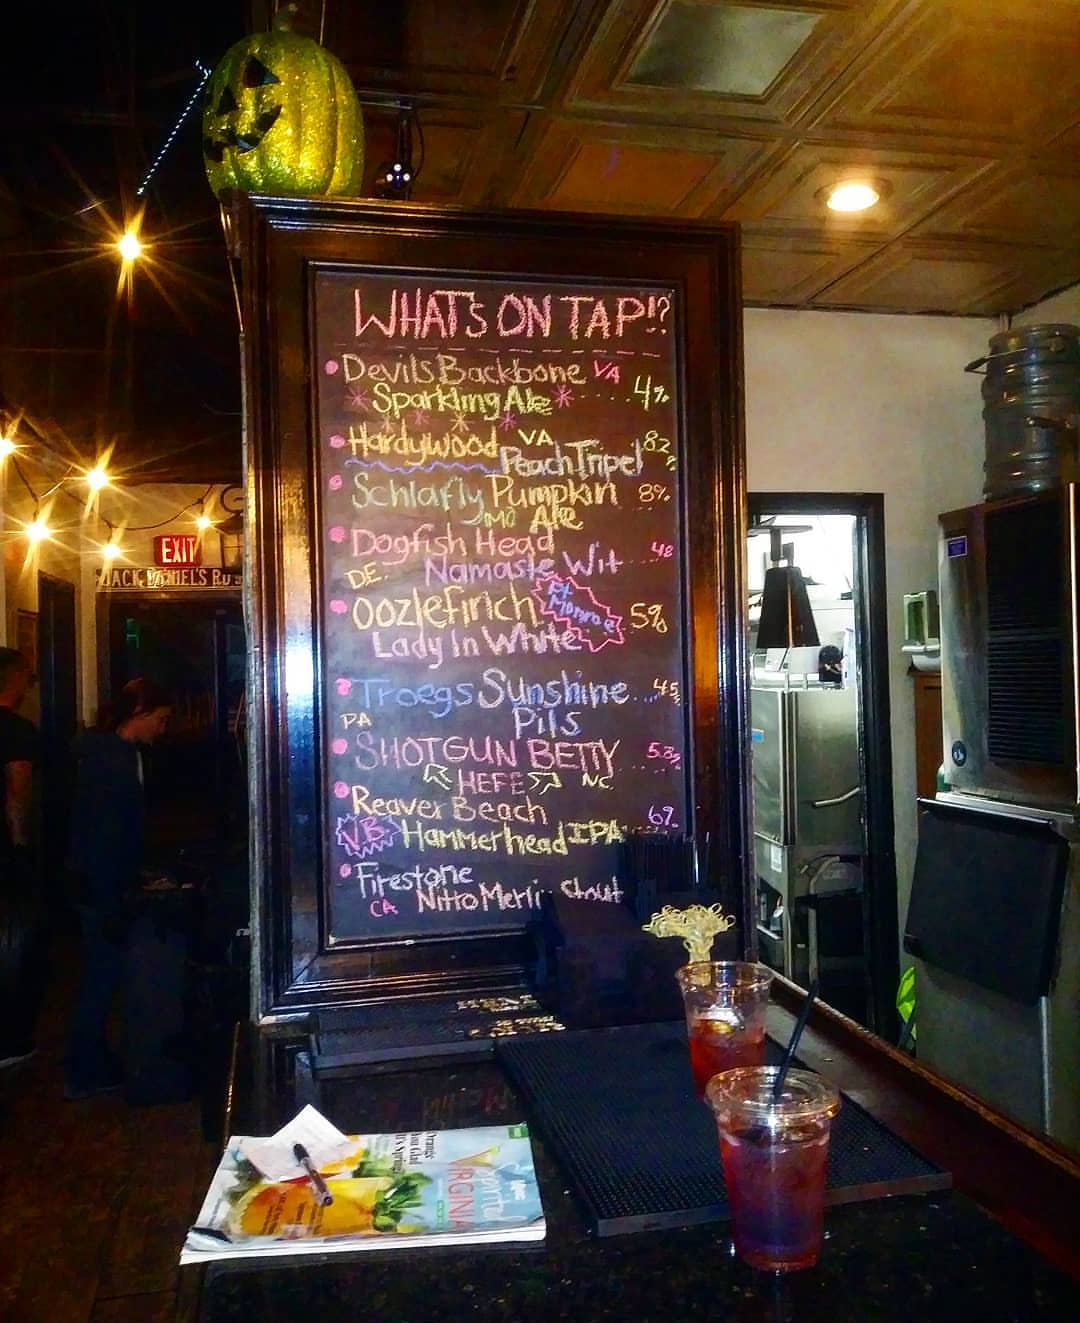 WHAT'S ON TAP!?
Devils Backbone VA
Sparkling Ale 4%
Hardywood VA 82
Peach Tripel ?
Schlafly Pumpkin 8%
MO Ale
Dogfish Head 48
DE. Namaste Wit
Oozlefinch Ft Monroe 5%
Lady In White
Troegs Sunshine 45
PA Pils
SHOTGUN BETTY 5.8%
HEFE NC
Reaver Beach 6%
V.B. Hammerhead IPA
Firestone
CA Nitro Merlin Stout
EXIT
JACK DANIEL'S
VIRGINIA